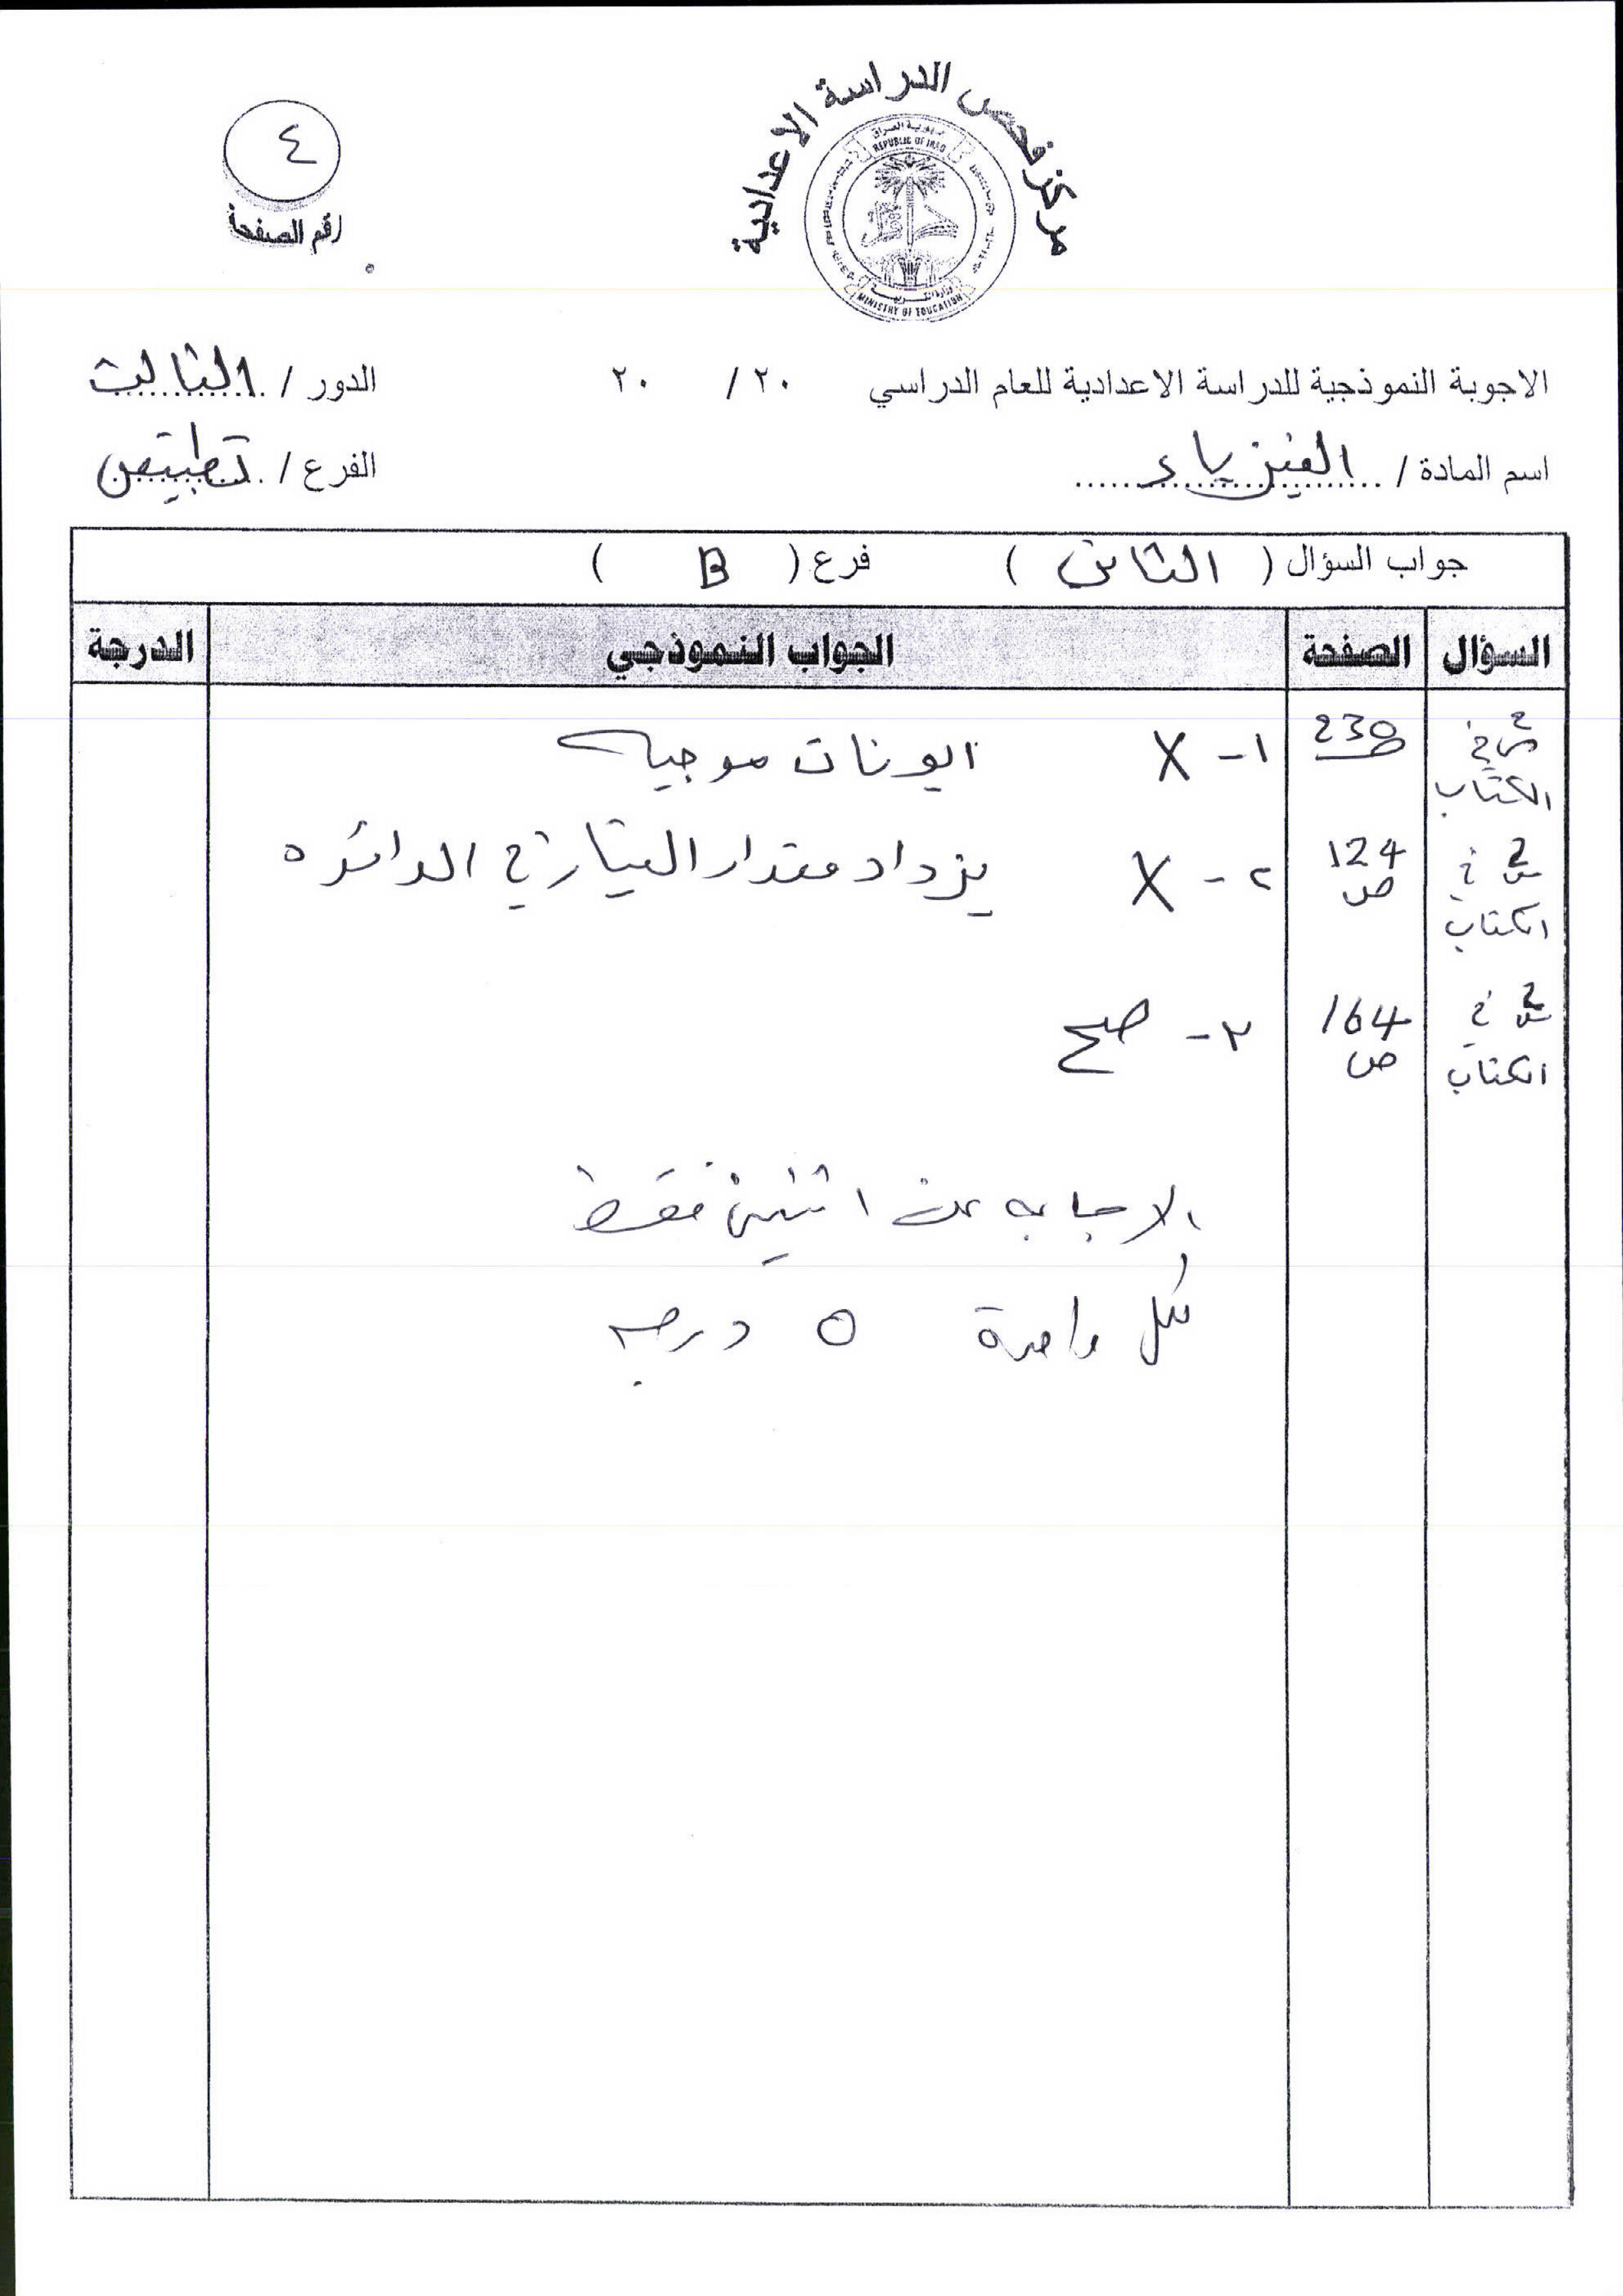 مركز فحص الدراسة الاعدادية
جمهورية العراق
REPUBLIC OF IRAQ
وزارة التربية
MINISTRY OF EDUCATION
٤
رقم الصفحة
الاجوبة النموذجية للدراسة الاعدادية للعام الدراسي ٢٠ / ٢٠ الدور / الثالث
اسم المادة / الفيزياء الفرع / تطبيقي
جواب السؤال ( الثاني ) فرع ( B )
السؤال الصفحة الجواب النموذجي الدرجة
س2 في الكتاب 230 ص ١- X ايونات موجبه
س2 في الكتاب 124 ص ٢- X يزداد مقدار التيار في الدائره
س2 في الكتاب 164 ص ٣- صح
الاجابه عن اثنين فقط
لكل واحدة ٥ درجه